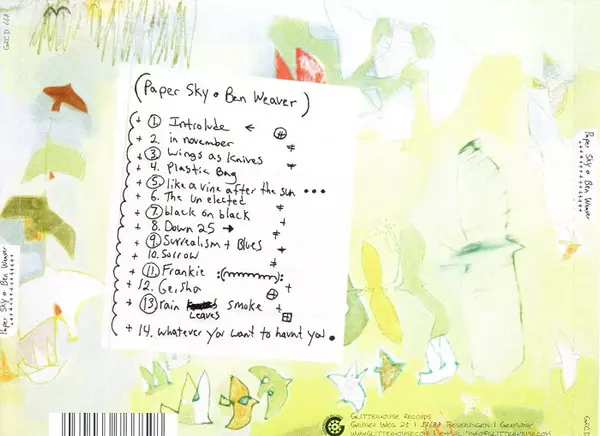 GRCD 668
(Paper Sky • Ben Weaver)
+ ① Introlude ←
+ 2. in november
+ ③ Wings as Knives
+ 4. Plastic Bag
+ ⑤ like a vine after the sun •••
+ 6. The un elected
+ ⑦ black on black
+ 8. Down 25 →
+ ⑨ Surrealism + Blues
+ 10. Sorrow
+ ⑪ Frankie
+ 12. Geisha
+ ⑬ rain smoke
Leaves
+ 14. whatever you want to haunt you.
Paper Sky • Ben Weaver
Paper Sky • Ben Weaver
GLITTERHOUSE RECORDS
GRÜNER WEG 25 | 37688 BEVERUNGEN | GERMANY
WWW.GLITTERHOUSE.COM
GRCD 668